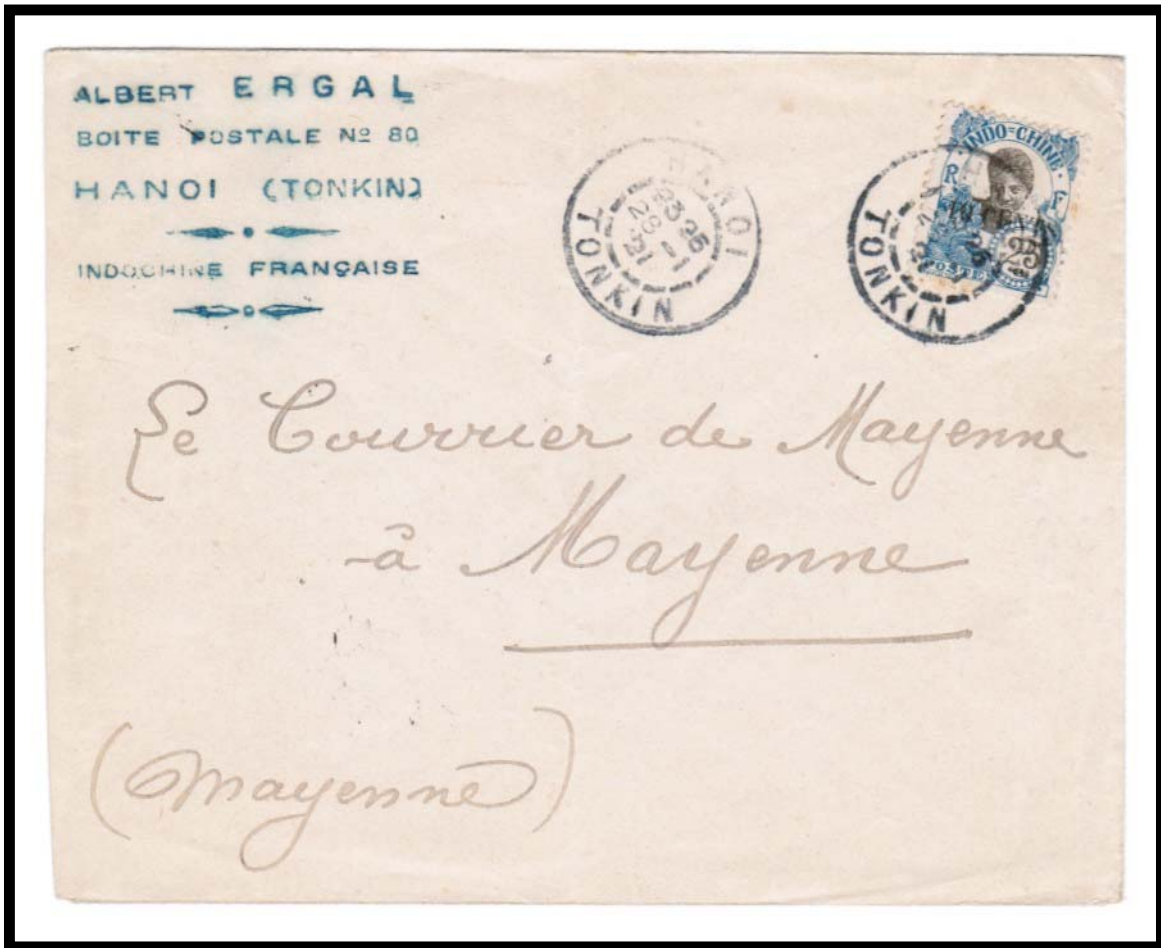 ALBERT ERGAL
BOITE POSTALE Nº 80
HANOI (TONKIN)
INDOCHINE FRANÇAISE
HANOI
TONKIN
INDO=CHINE
R F
CENTS
25
POSTES
TONKIN
Le Courrier de Mayenne
à Mayenne
(Mayenne)